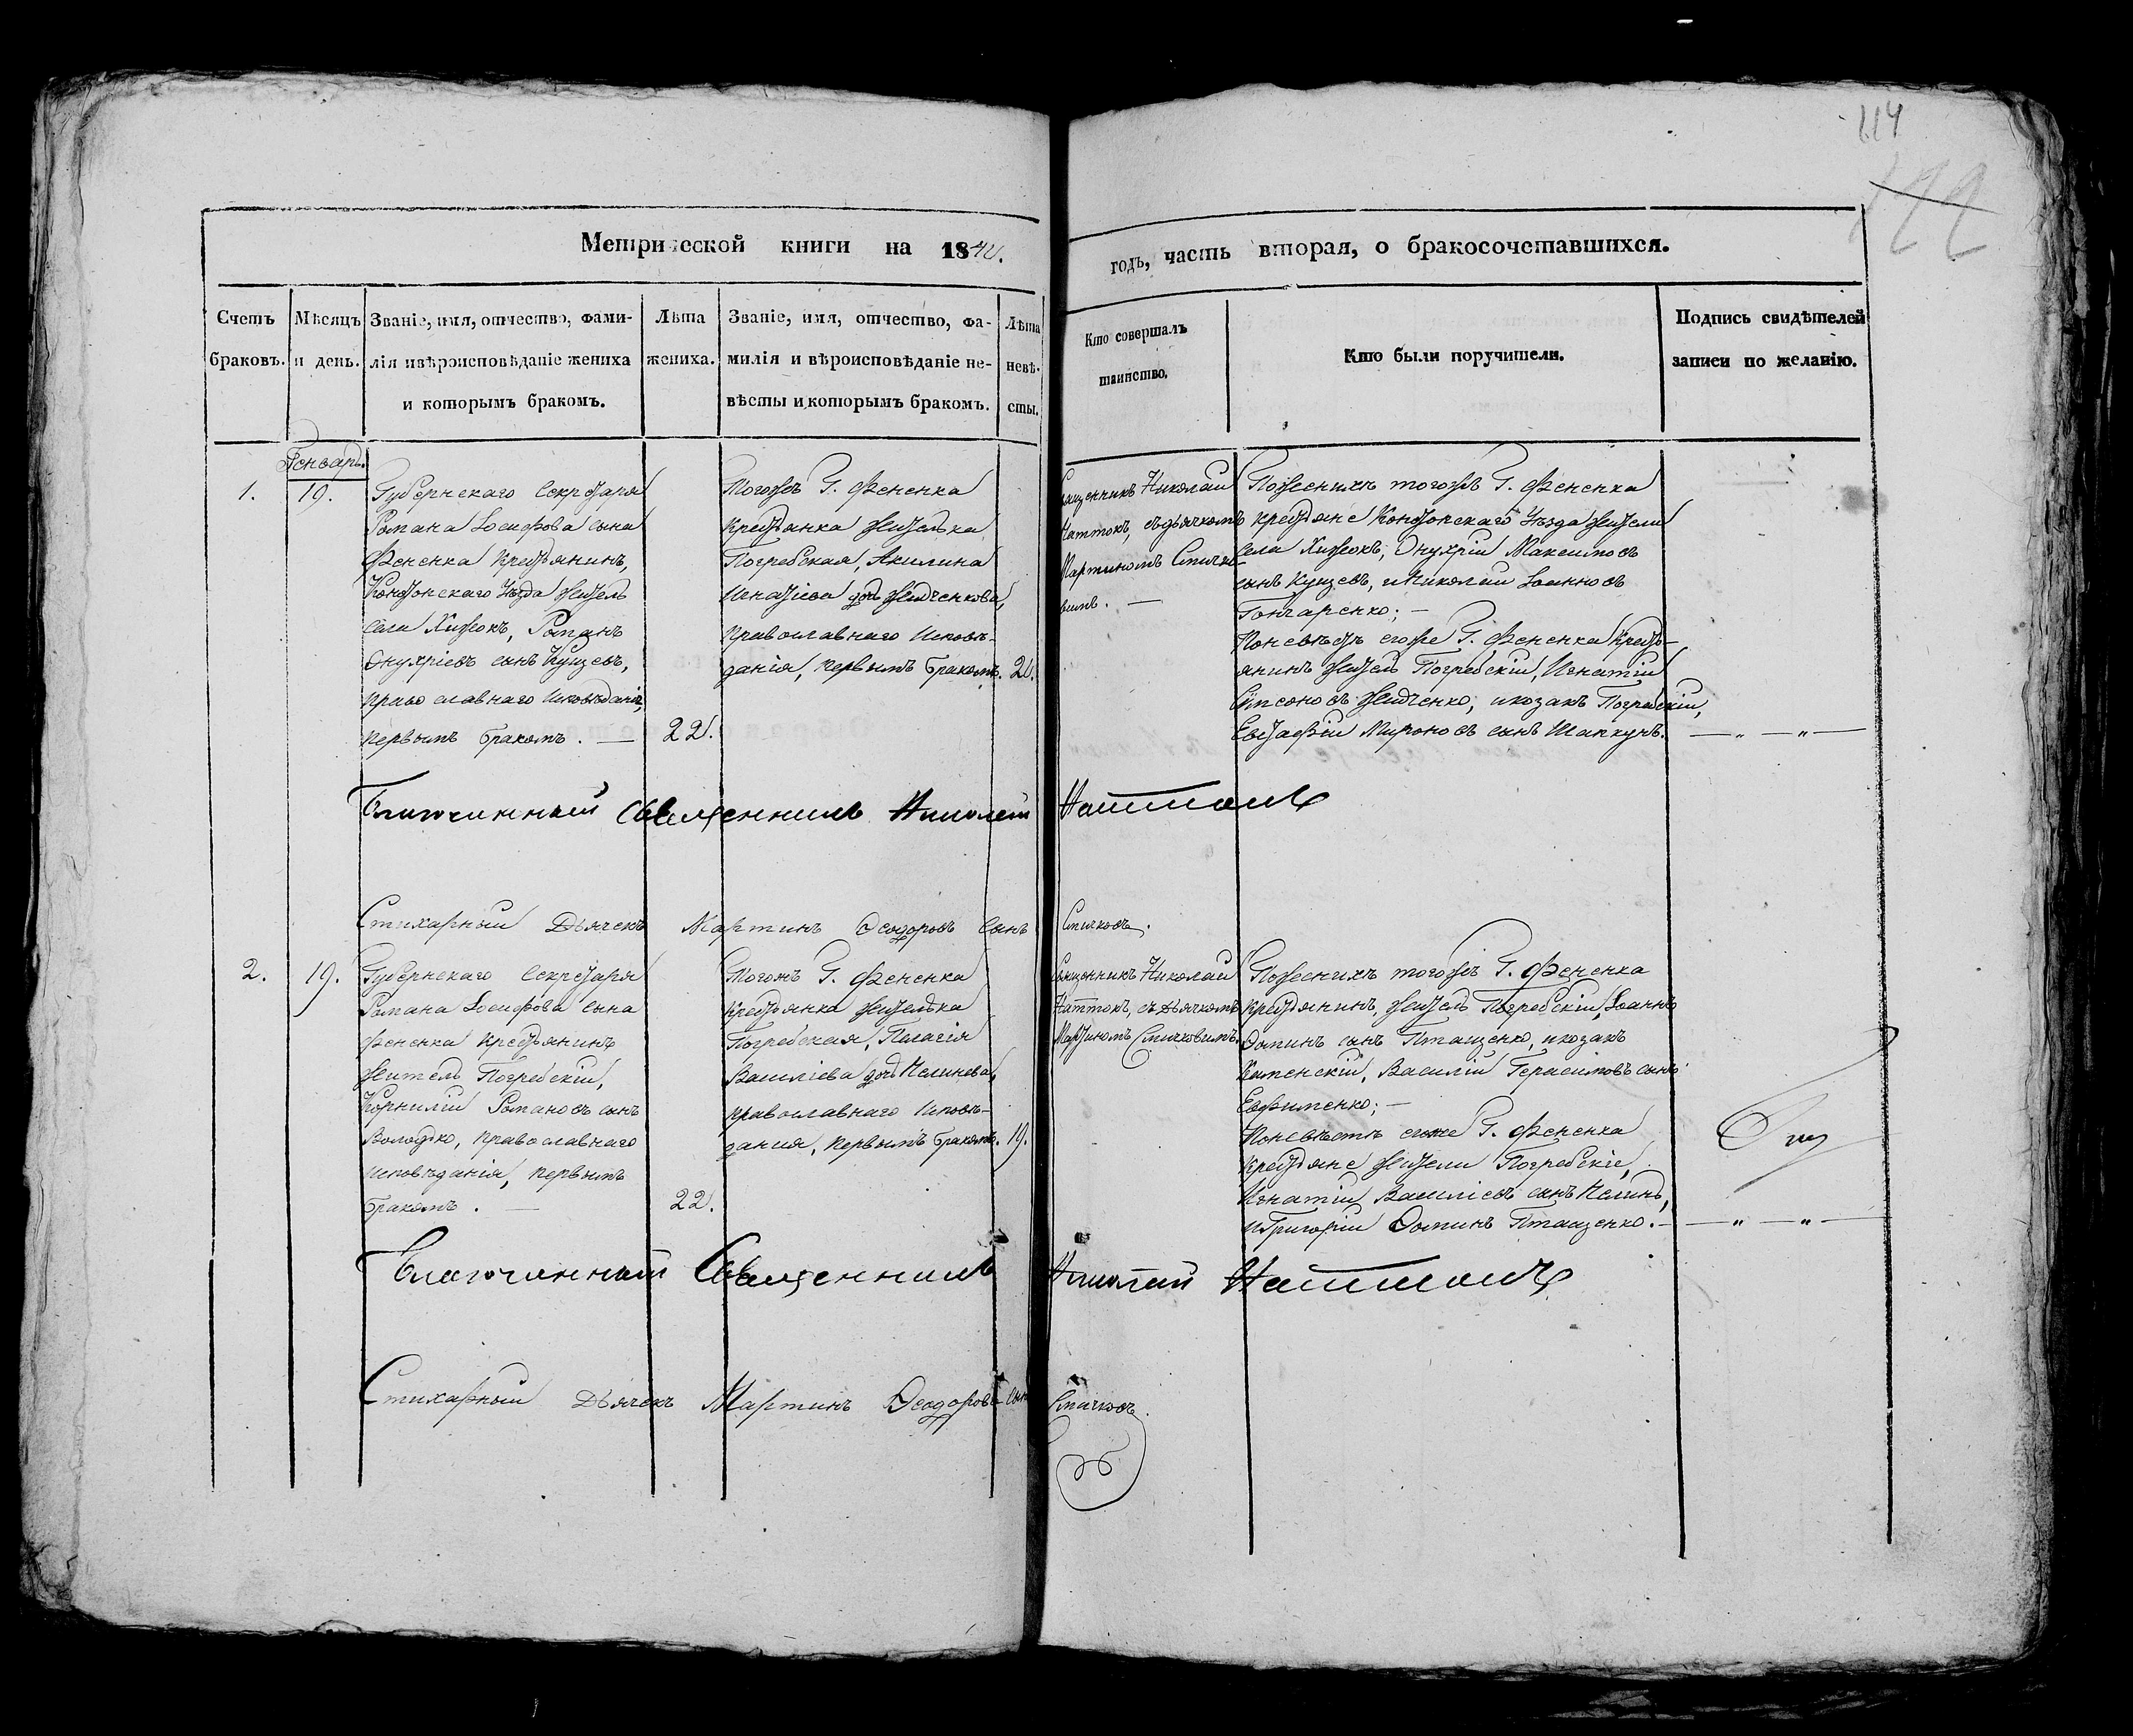 114
Метрической книги на 184
годъ, часть вторая, о бракосочетавшихся.
Счетъ браковъ.
Мѣсяцъ и день.
Званіе, имя, отчество, фами-
лія и вѣроисповѣданіе жениха
и которымъ бракомъ.
Лѣта
жениха.
Званіе, имя, отчество, фа-
милія и вѣроисповѣданіе не-
вѣсты и которымъ бракомъ.
Лѣта
невѣ-
сты.
Кто совершалъ
таинство.
Кто были поручители.
Подпись свидѣтелей
записи по желанію.
Генваря
1.
19.
Губернскаго Секретаря
Романа Іосифова сына
Фененка крестьянинъ,
Конотопскаго Уѣзда житель
села Хижокъ, Романъ
Онуфріевъ сынъ Куцевъ,
православнаго исповѣданія,
первымъ бракомъ. —
22.
Тогожъ Г. Фененка
крестьянка жителька
Погребская, Акилина
Игнатіева дочь Жидченкова,
православнаго исповѣ-
данія, первымъ бракомъ.
Священникъ Николай
Наттокъ, съ дьячкомъ
Мартиномъ Смичко-
вимъ. —
По женихѣ тогожъ Г. Фененка
крестьяне Конотопскаго Уѣзда жители
села Хижокъ, Онуфрій Максимовъ
сынъ Куцевъ, и Николай Іоанновъ
Гончаренко; —
По невѣстѣ егоже Г. Фененка кресть-
янинъ житель Погребскій, Игнатій
Самсоновъ Жидченко, и козакъ Погребскій,
Евстафій Мироновъ сынъ Шапкунъ. — „ — „ —
Благочинный Священникъ Николай Наттокъ
Стихарный Дьячекъ Мартинъ Ѳеодоровъ сынъ Смичковъ.
2.
19.
Губернскаго Секретаря
Романа Іосифова сына
Фененка крестьянинъ
житель Погребскій,
Корнилій Романовъ сынъ
Володько, православнаго
исповѣданія, первымъ
бракомъ. —
22.
Тогожъ Г. Фененка
крестьянка жителька
Погребская, Пелагія
Василіева дочь
православнаго исповѣ-
дания, первымъ бракомъ.
19.
Священникъ Николай
Наттокъ, съ дьячкомъ
Мартиномъ Смичковимъ.
По женихѣ тогожъ Г. Фененка
крестьянинъ, житель Погребскій, Іоаннъ
Ѳоминъ сынъ Пташенко, и козакъ
Каменскій, Василій Герасимовъ сынъ
Евфименко; —
По невѣстѣ егоже Г. Фененка
крестьяне жители Погребскіе,
Игнатій Василіевъ сынъ
и Григорій Ѳоминъ Пташенко. — „ — „ —
Благочинный Священникъ Николай Наттокъ
Стихарный Дьячекъ Мартинъ Ѳеодоровъ сынъ Смичковъ.